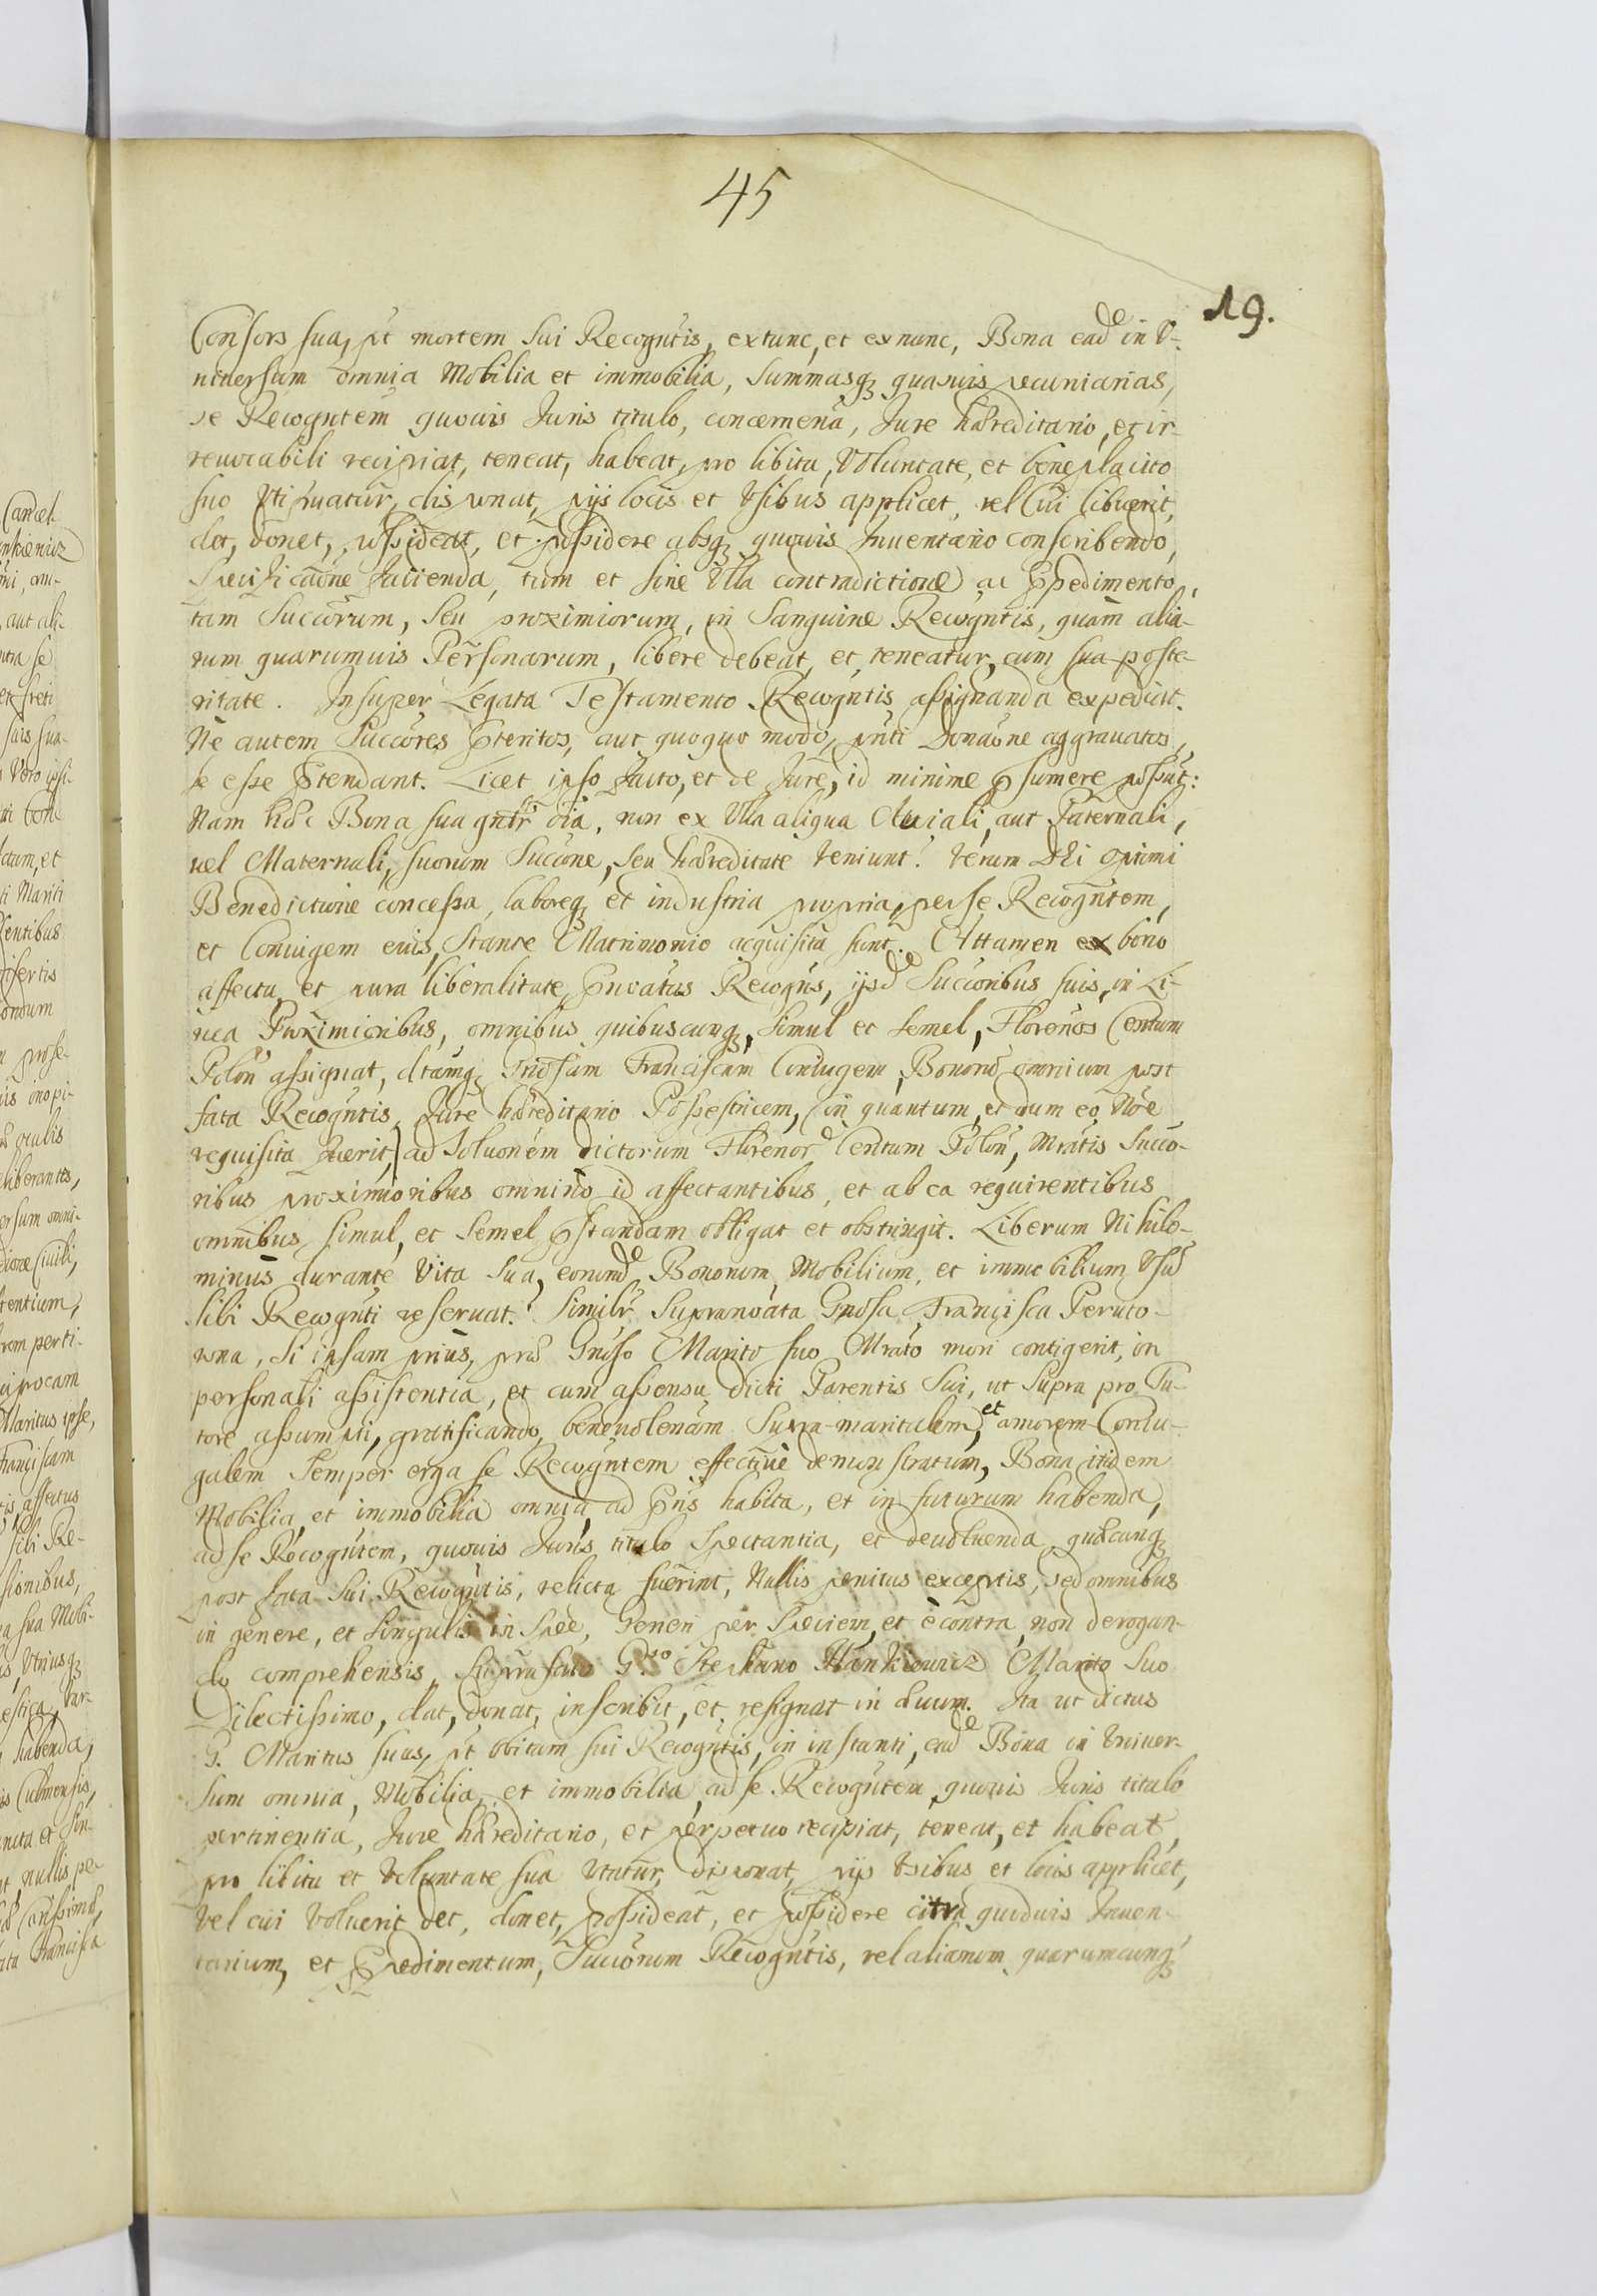 45
19.
Consors sua, pt mortem sui Recogntis, extunc, et exnunc, Bona eadde in V-
niuersum omnia Mobilia et immobilia, Summasq quasuis pecuniarias,
se Recogntem quouis Juris titulo, concernena, Jure hæreditario, et ir-
reuocabili recipiat, teneat, habeat, pro libitu, Voluntate, et beneplacito
suo Vtifruatur, disponat, pijs locis et Vsibus applicet, vel Cui libuerit,
det, donet, possideat, et possidere absq quouis Inuentario conscribendo,
Specificatione facienda, tum et sine Vlla contradictione ac Ppedimento,
tam Succorum, Seu proximiorum, in Sanguine Recogntis, quam alia-
rum quarumuis Personarum, libere debeat, et teneatur, cum sua poste-
ritate. Insuper Legata Testamento Recogntis assignanda expediat.
Ne autem Succores Pteritos, aut quoquo modo, pnti Donaone aggrauatos,
se esse Ptendant. Licet ipso facto, et de Jure, id minime Psumere possut:
Nam hæc Bona sua gntr oia, non ex Vlla aliqua Auiali, aut Paternali,
uel Maternali, suorum Succone, seu hæreditate veniunt. Verum Dei Optimi
Benedictione concessa, laboreq et industria propria, per se Recogntem,
et Coniugem eius, Stante Matrimonio acquisita sunt. Attamen ex bono
affectu et pura liberalitate Pnoatus Recogns, ijsdde Succoribus suis, in Li-
nea Proximioribus, omnibus quibuscunq, simul et semel, Florenos Centum
Polon assignat, dtamq Gnosam Franciscam Coniugem, Bonoru omnium post
fata Recogntis Jure hæreditario Possestricem, (in quantum, et dum eo Noe
requisita fuerit,) ad Soluonem dictorum Florenor Centum Polon, Mratis Succo-
ribus proximioribus omnino id affectantibus, et ab ea requirentibus
omnibus simul, et semel Pstandam obligat et obstringit. Liberum Nihilo-
minus durante Vita sua, eorundde Bonorum Mobilium, et immobilium Vsu
sibi Recognti reseruat. Similr Supranoata Gnosa Francisca Peruto-
wna, Si ipsam prius, præ Gnoso Marito suo Mrato mori contigerit, in
personali assistentia, et cum assensu dicti Parentis Sui, ut Supra pro Tu-
tore assumpti, gratificando, beneuolenam Supra-maritalem, et amorem Coniu-
galem Semper erga se Recogntem effectiue demonstratum, Bona itidem
Mobilia, et immobilia omnia, ad Pns habita, et in futurum habenda,
ad se Recogntem, quouis Juris titulo Spectantia, et deuoluenda, quæcunq
post fata Sui Recogntis, relicta fuerint, Nullis penitus exceptis, sed omnibus
in genere, et singulis in Spee, Generi per Speciem, et è contra, non derogan-
do comprehensis, Suprafato Gso Stephano Hankiewicz Marito Suo
Dilectissimo, dat, donat, inscribit, et resignat in æuum. Ita ut dictus
G. Maritus suus, pt obitum sui Recogntis, in instanti, eadde Bona in Vniuer-
sum omnia, Mobilia, et immobilia, ad se Recogntem, quouis Juris titulo
pertinentia, Jure hæreditario, et perpetuo recipiat, teneat, et habeat,
pro libitu et Voluntate sua Vtatur, disponat, pijs Vsibus et locis applicet,
Vel cui Voluerit det, donet, possideat, et possidere citra quoduis Inuen-
tarium, et Ppedimentum, Succorum Recogntis, vel aliarum quarumcunq